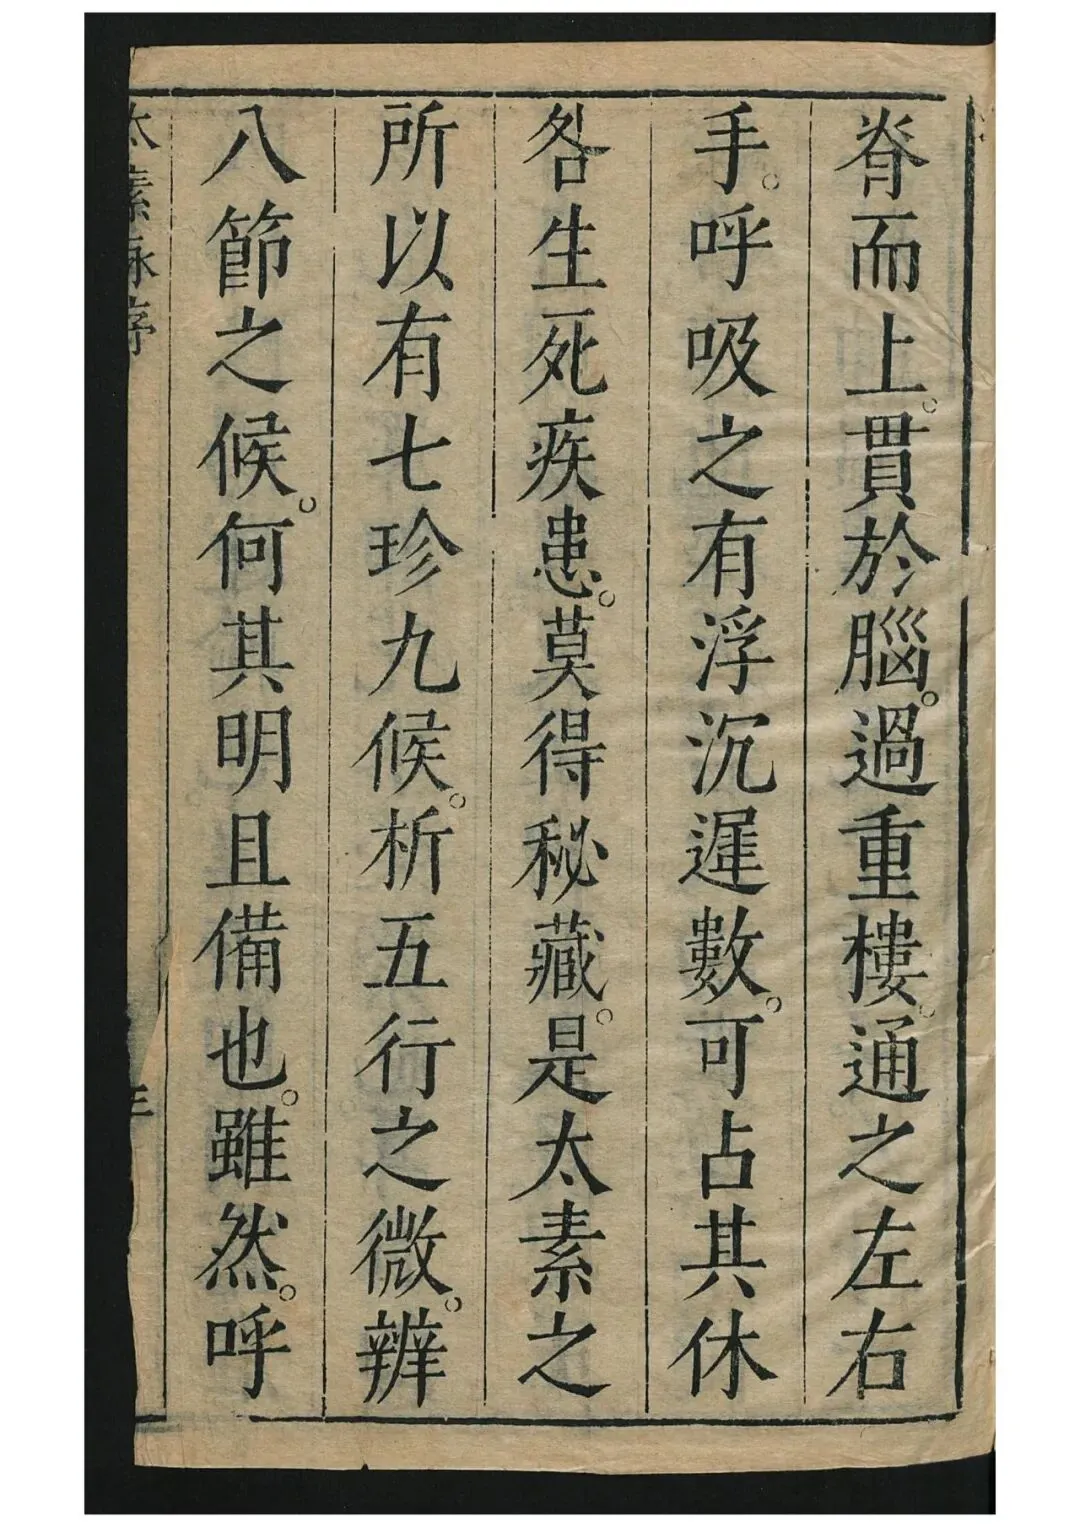 脊而上。貫於腦。過重樓。通之左右
手。呼吸之有浮沉遲數。可占其休
咎生死疾患。莫得秘藏。是太素之
所以有七珍九候。析五行之微。辨
八節之候。何其明且備也。雖然。呼
太素脉序
三